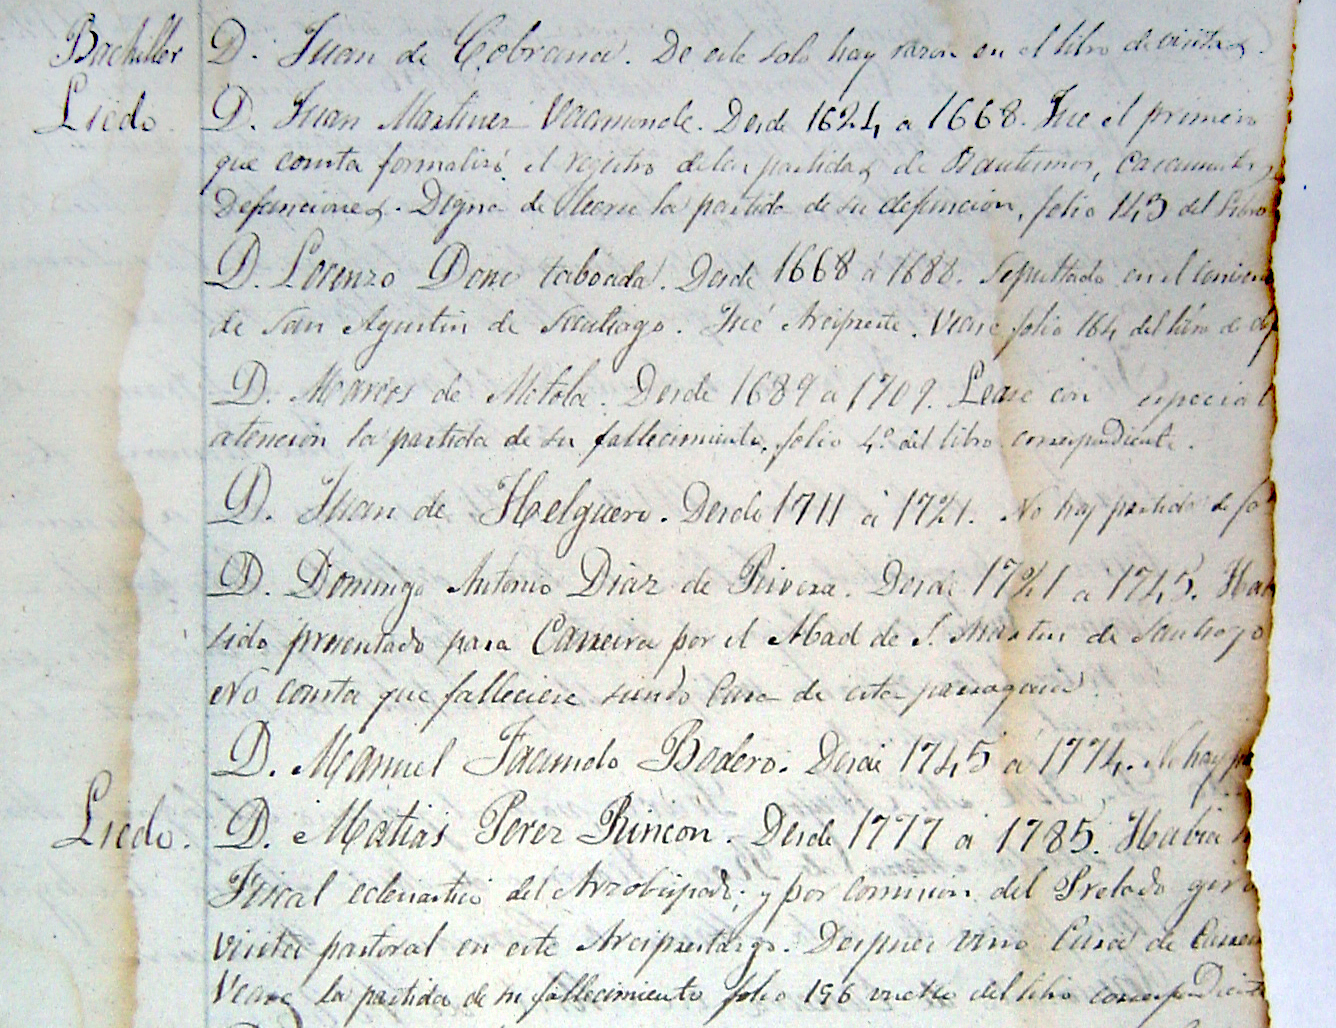 Bachiller D. Juan de Cobrana. De este solo hay razon en el libro de visitas.
Licdo. D. Juan Martinez Vaamonde. Desde 1624 a 1668. Fue el primero
que consta formalizó el registro de las partidas de Bautismos, Casamientos y
Defunciones. Digna de leerse la partida de su defuncion, folio 143 del Libro
D. Lorenzo Done taboada. Desde 1668 a 1688. Sepultado en el
de San Agustin de Santiago. Fué Arcipreste. Vease folio 164 del libro de
D. Marcos de Motola. Desde 1689 a 1709. Lease con especial
atención la partida de su fallecimiento, folio 4º del libro correspondiente.
D. Juan de Helguero. Desde 1711 á 1721. No hay partida de
D. Domingo Antonio Diaz de Rivera. Desde 1721 a 1745.
sido presentado para Carreira por el Abad de S. Martin de Santiago
No consta que falleciese siendo Cura de esta parroquia.
D. Manuel Facundo Bodero. Desde 1745 á 1774. No hay
Licdo. D. Matias Perez Rincon. Desde 1777 á 1785. Habia
Fiscal eclesiastico del Arzobispado; y por comision del Prelado
visita pastoral en este Arciprestazgo. Despues vino Cura de
Vease la partida de su fallecimiento folio 196 vuelto del libro correspondiente